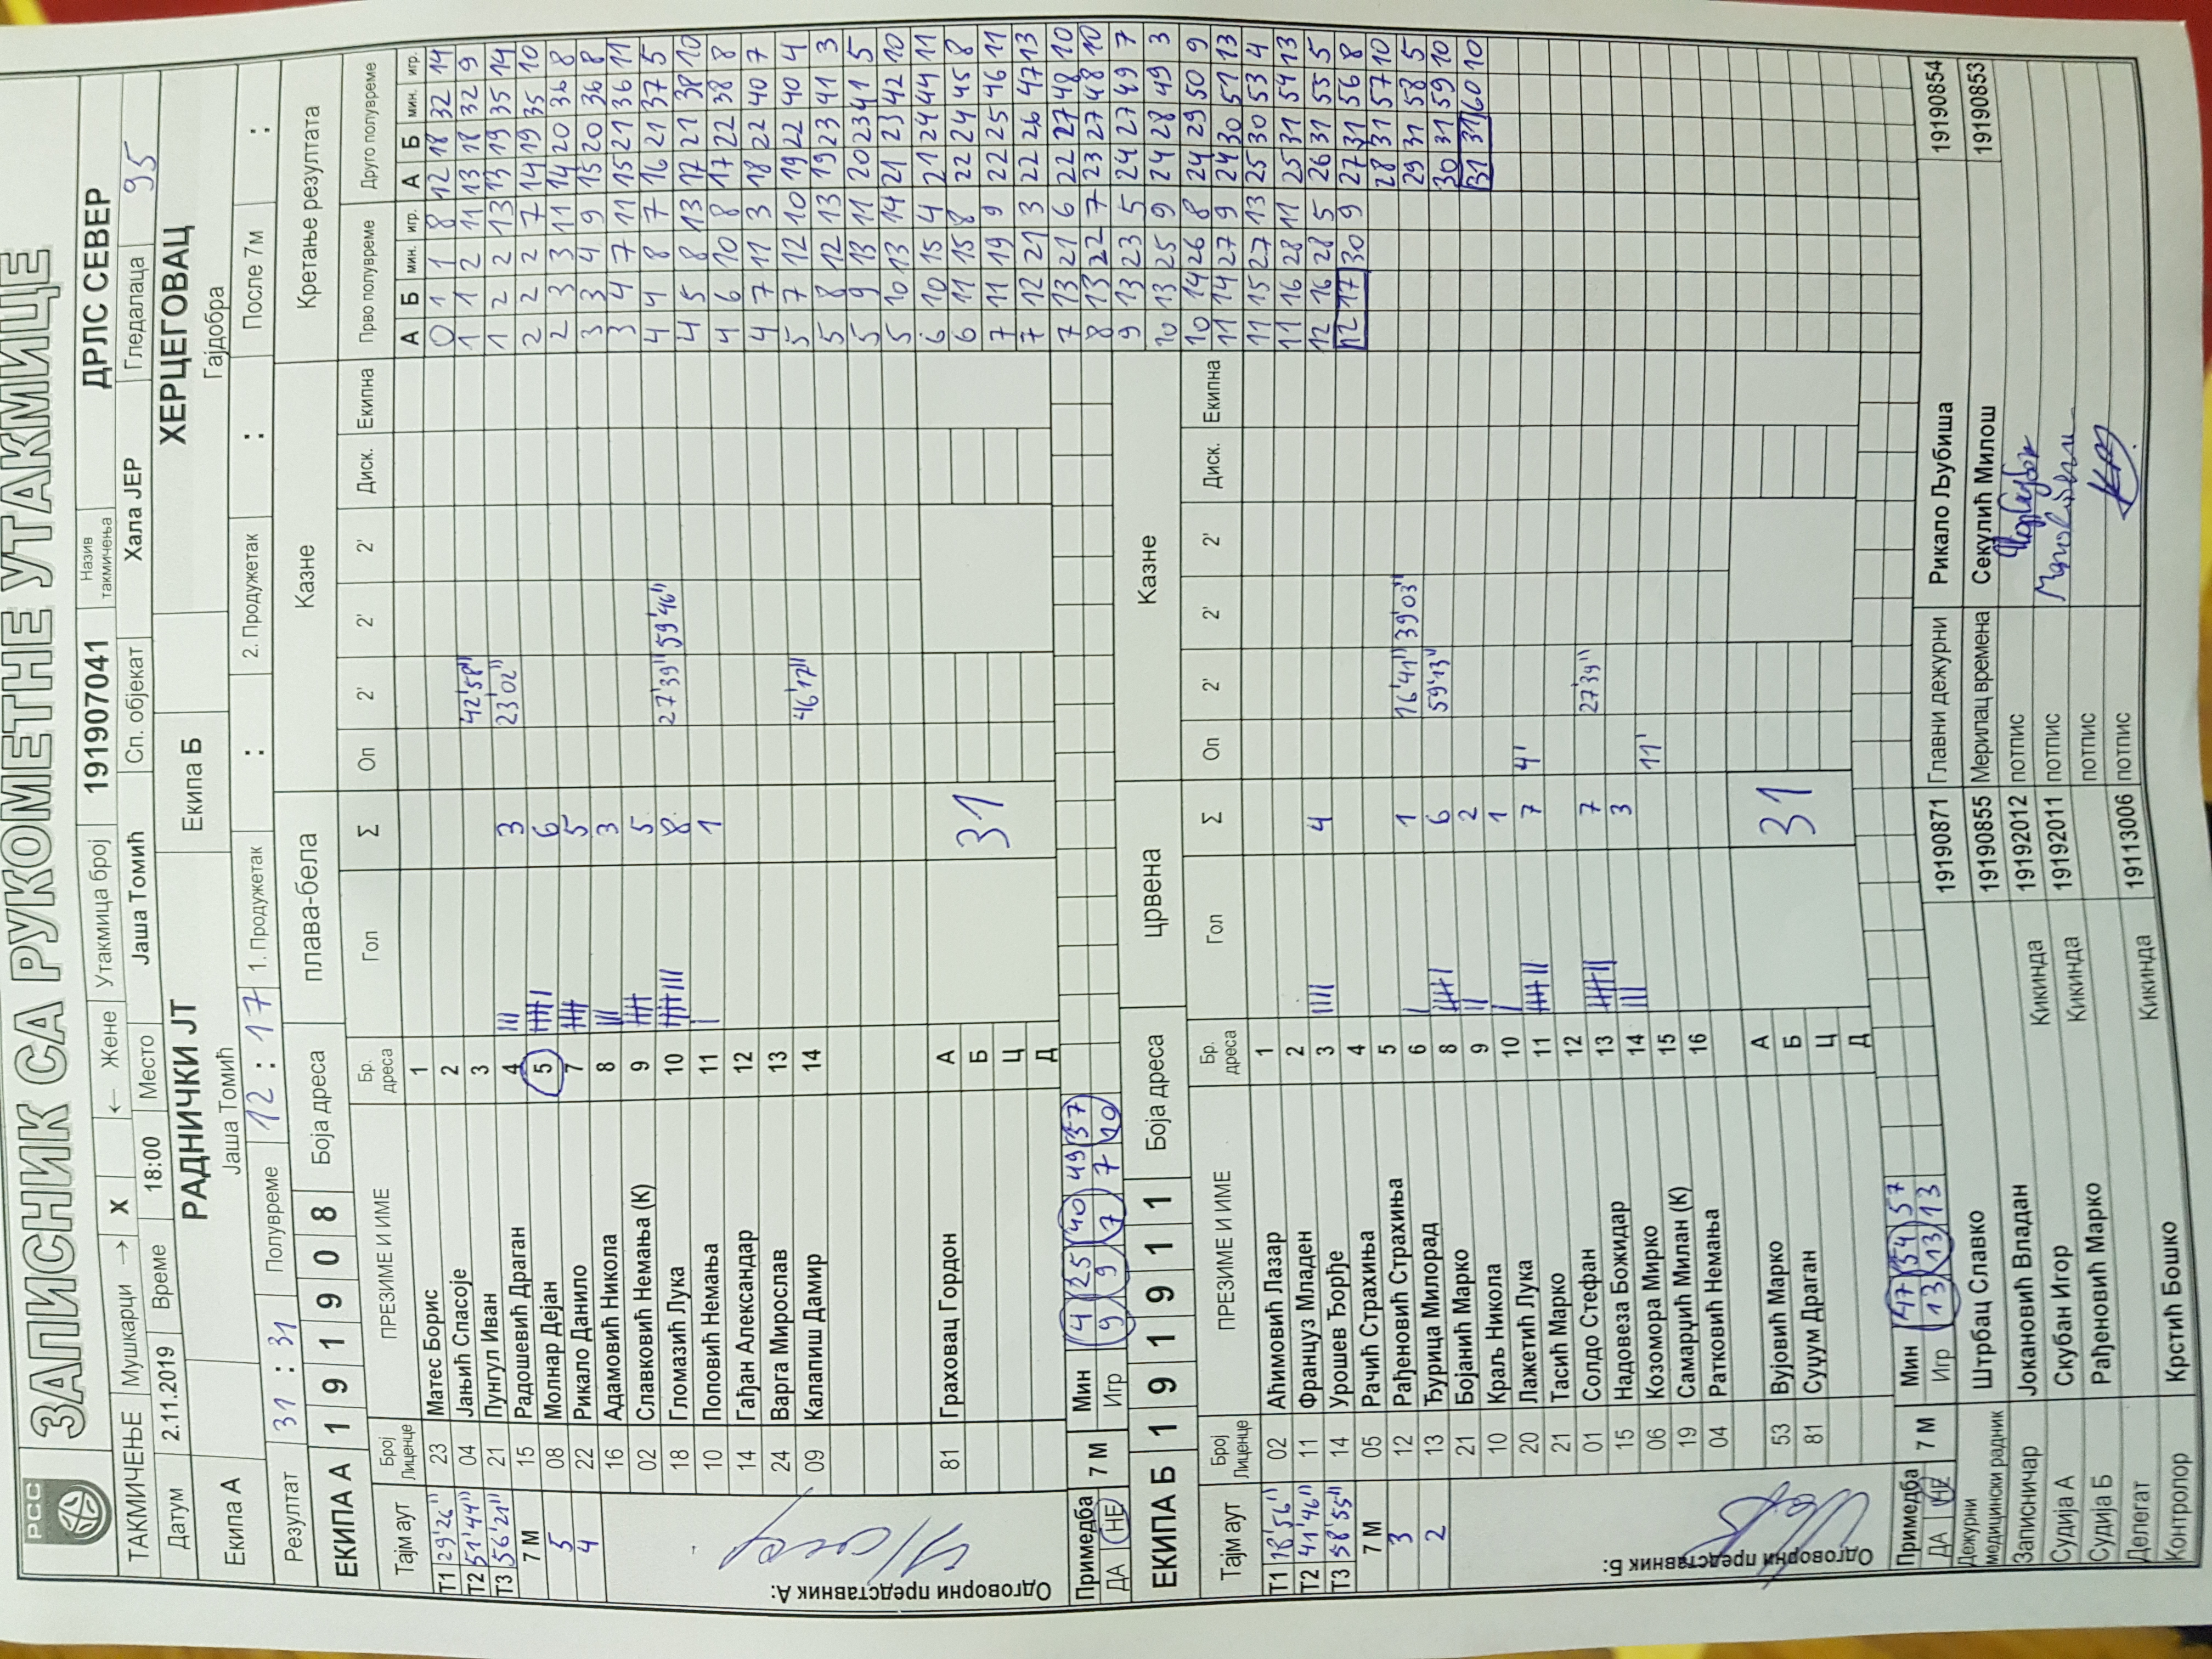 РСС
ЗАПИСНИК СА РУКОМЕТНЕ УТАКМИЦЕ
ТАКМИЧЕЊЕ Мушкарци → X ← Жене Утакмица број 191907041 Назив такмичења ДРЛС СЕВЕР
Датум 2.11.2019 Време 18:00 Место Јаша Томић Сп. објекат Хала ЈЕР Гледалаца 95
Екипа А РАДНИЧКИ ЈТ Екипа Б ХЕРЦЕГОВАЦ
Јаша Томић Гајдобра
Резултат 31 : 31 Полувреме 12 : 17 1. Продужетак : 2. Продужетак : После 7м :
ЕКИПА А 1 9 1 9 0 8 Боја дреса плава-бела Казне Кретање резултата
Тајм аут Број Лиценце ПРЕЗИМЕ И ИМЕ Бр. дреса Гол Σ Оп 2' 2' 2' Диск. Екипна Прво полувреме Друго полувреме
А Б мин. игр. А Б мин. игр.
Т1 29'26" 23 Матес Борис 1
Т2 51'44" 04 Јањић Спасоје 2
Т3 56'21" 21 Пунгул Иван 3 42'58"
7 М 15 Радошевић Драган 4 3 23'02"
5 08 Молнар Дејан 5 6
4 22 Рикало Данило 7 5
16 Адамовић Никола 8 3
02 Славковић Немања (К) 9 5
18 Гломазић Лука 10 8 27'39" 59'46"
10 Поповић Немања 11 1
14 Гађан Александар 12
24 Варга Мирослав 13
09 Калапиш Дамир 14 46'17"
81 Граховац Гордон А 31
Б
Ц
Д
Одговорни представник А:
0 1 1 8 12 18 32 14
1 1 2 11 13 18 32 9
1 2 2 13 13 19 35 14
2 2 2 7 14 19 35 10
2 3 3 11 14 20 36 8
3 3 4 9 15 20 36 8
3 4 7 11 15 21 36 11
4 4 8 7 16 21 37 5
4 5 8 13 17 21 38 10
4 6 10 8 17 22 38 8
4 7 11 3 18 22 40 7
5 7 12 10 19 22 40 4
5 8 12 13 19 23 41 3
5 9 13 11 20 23 41 5
5 10 13 14 21 23 42 10
6 10 15 4 21 24 44 11
6 11 15 8 22 24 45 8
7 11 19 9 22 25 46 11
7 12 21 3 22 26 47 13
7 13 21 6 22 27 48 10
8 13 22 7 23 27 48 10
9 13 23 5 24 27 49 7
10 13 25 9 24 28 49 3
10 14 26 8 24 29 50 9
11 14 27 9 24 30 51 13
11 15 27 13 25 30 53 4
11 16 28 11 25 31 54 13
12 16 28 5 26 31 55 5
12 17 30 9 27 31 56 8
28 31 57 10
29 31 58 5
30 31 59 10
31 31 60 10
Примедба 7 М Мин 4 25 40 49 37
ДА НЕ Игр 9 9 7 7 10
ЕКИПА Б 1 9 1 9 1 1 Боја дреса црвена Казне
Тајм аут Број Лиценце ПРЕЗИМЕ И ИМЕ Бр. дреса Гол Σ Оп 2' 2' 2' Диск. Екипна
Т1 18'56" 02 Аћимовић Лазар 1
Т2 41'46" 11 Француз Младен 2
Т3 58'55" 14 Урошев Ђорђе 3 4
7 М 05 Рачић Страхиња 4
3 12 Рађеновић Страхиња 5
2 13 Ђурица Милорад 6 1 16'41" 39'03"
21 Бојанић Марко 8 6 59'13"
10 Краљ Никола 9 2
20 Лажетић Лука 10 1
21 Тасић Марко 11 7 4'
01 Солдо Стефан 12
15 Надовеза Божидар 13 7 27'39"
06 Козомора Мирко 14 3
19 Самарџић Милан (К) 15 11'
04 Ратковић Немања 16
53 Вујовић Марко А 31
81 Суџум Драган Б
Ц
Д
Одговорни представник Б:
Примедба 7 М Мин 47 54 57
ДА НЕ Игр 13 13 13
Дежурни медицински радник Штрбац Славко 19190871 Главни дежурни Рикало Љубиша 19190854
19190855 Мерилац времена Секулић Милош 19190853
Записничар Јокановић Владан 19192012 потпис
Судија А Скубан Игор Кикинда 19192011 потпис
Судија Б Рађеновић Марко Кикинда потпис
Делегат 19113006 потпис
Контролор Крстић Бошко Кикинда